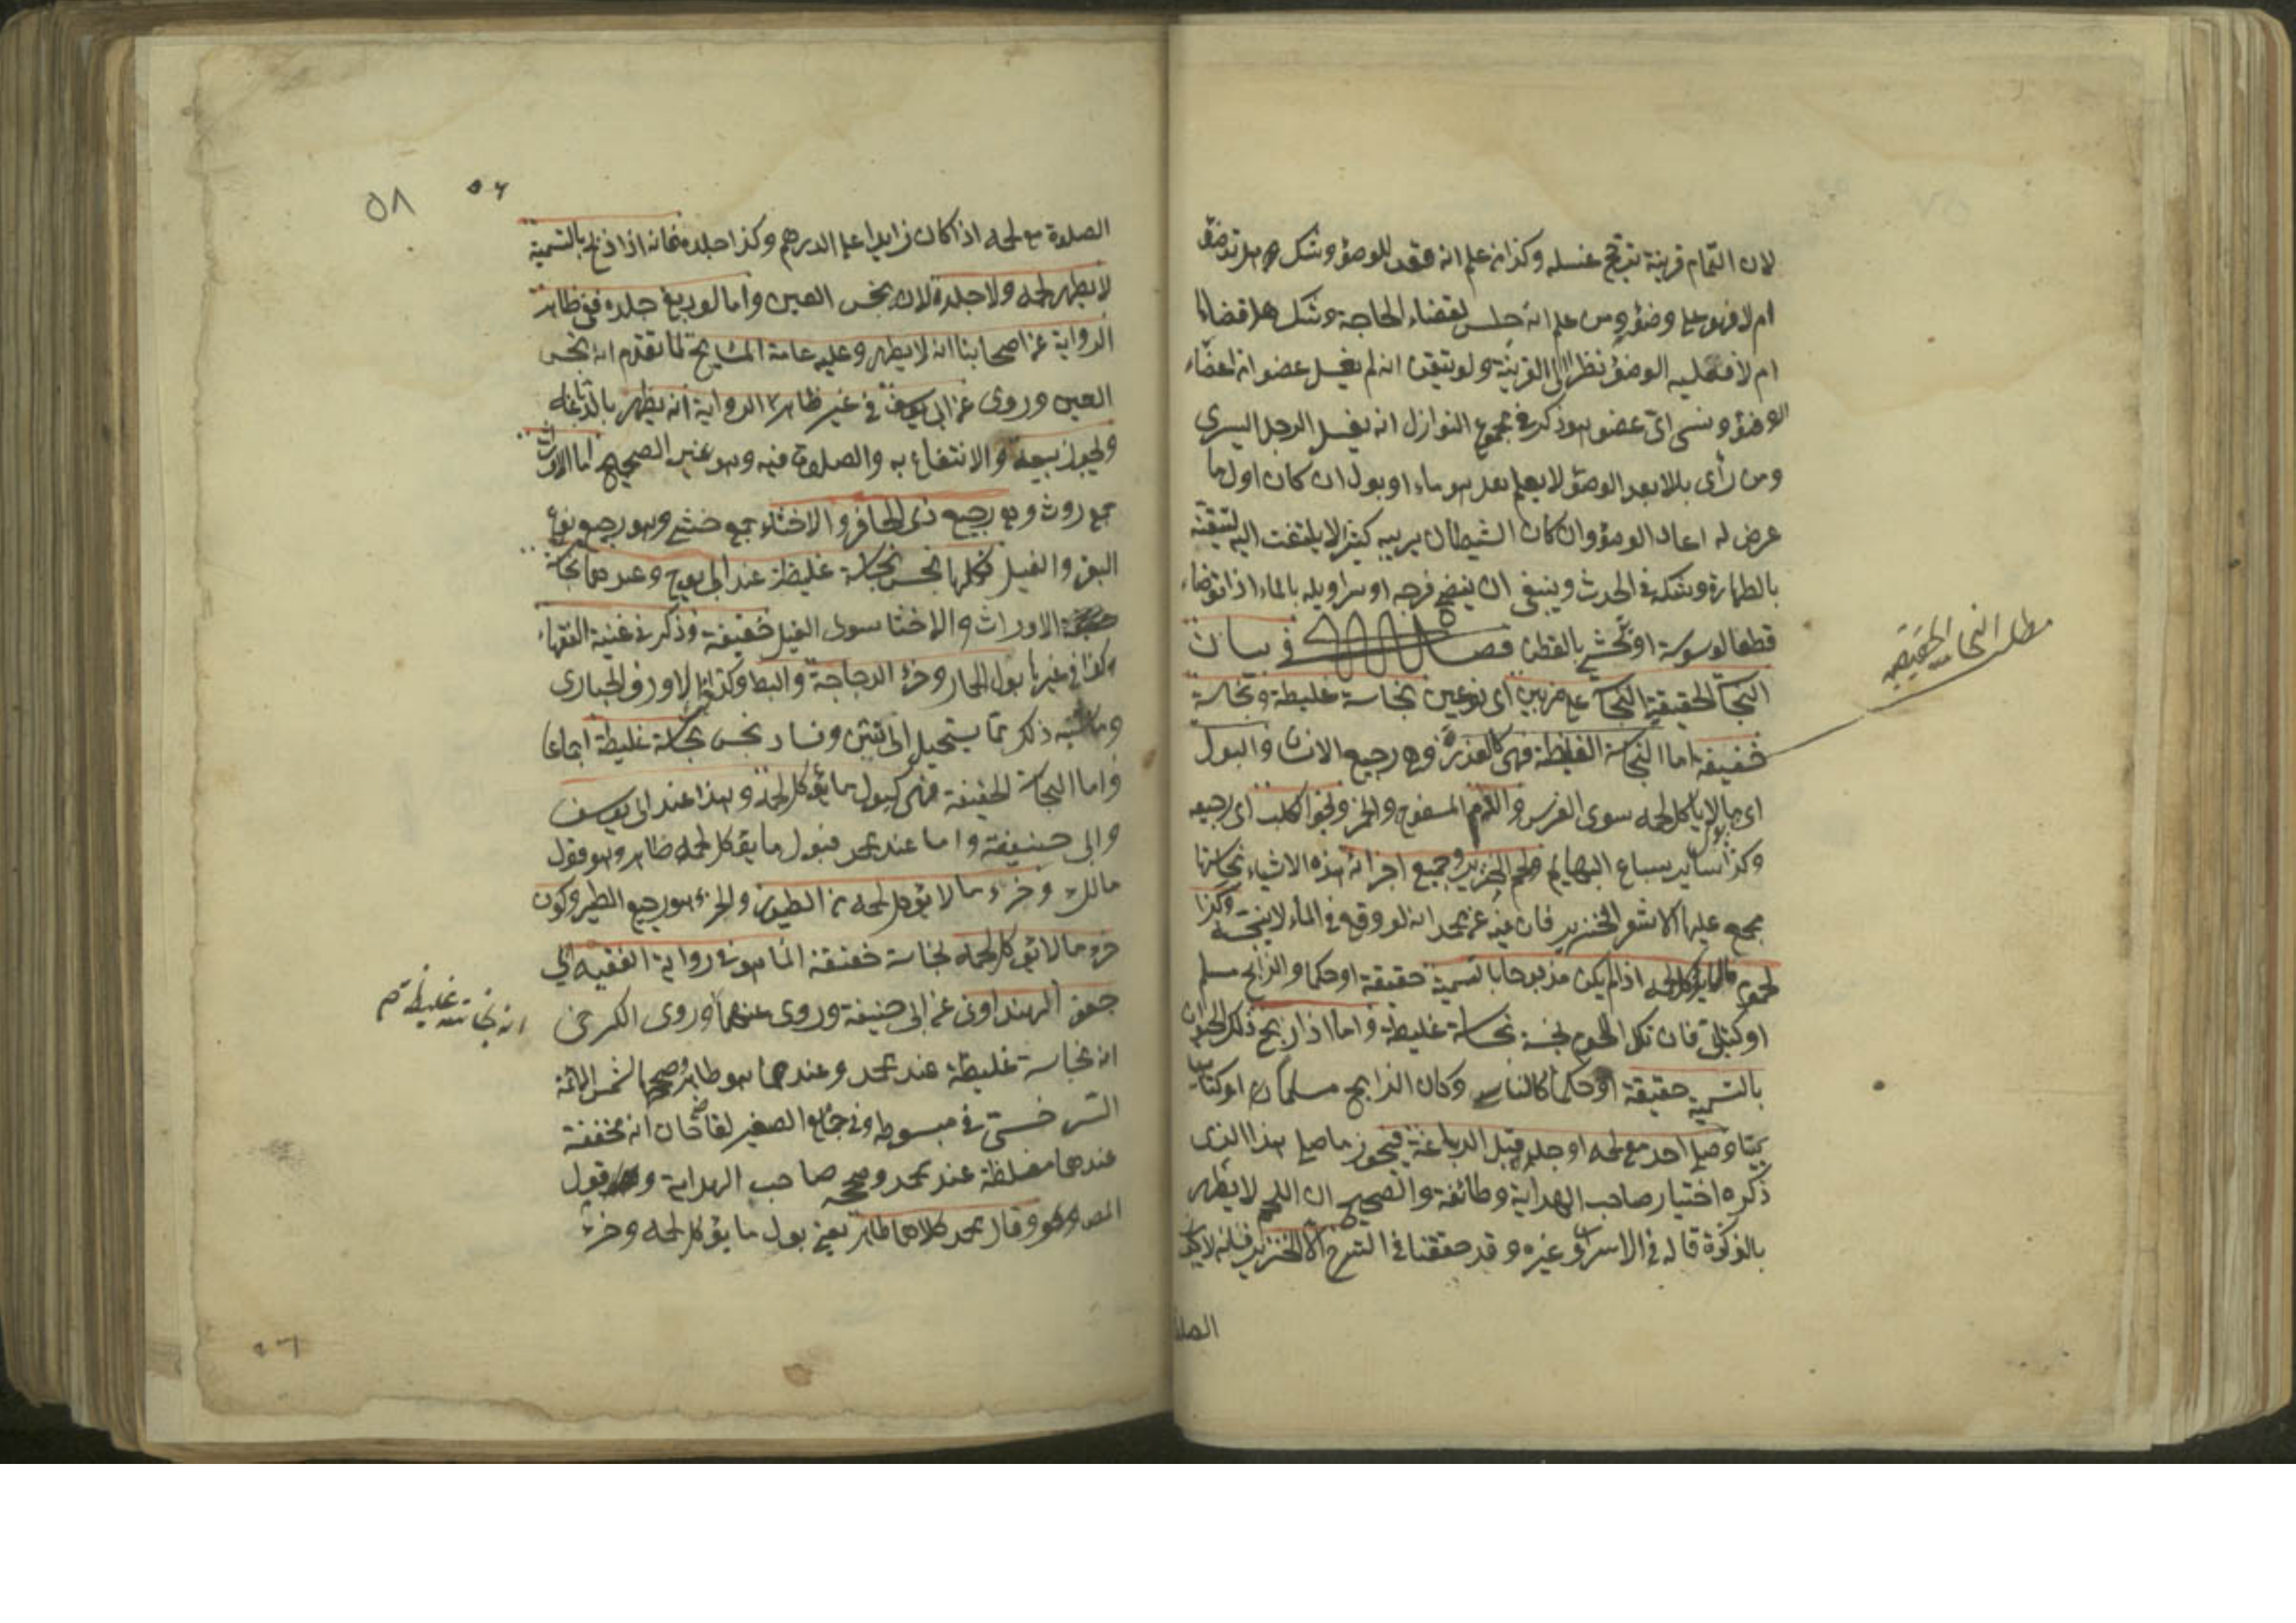 لان التمام قرينة ترجح غسله وكذا من علم انه قعد للوضؤ وشك هل توضؤ
ام لا فهو على وضؤ ومن علم انه جلس لقضاء الحاجة وشك هل قضاها
ام لا فعليه الوضؤ نظرا الى القرينة ولو تيقن انه لم يغسل عضوا من اعضاء
الوضؤ ونسى اى عضو هو ذكر فى مجموع النوازل انه يغسل الرجل اليسرى
ومن رأى بللا بعد الوضؤ لا يعلم هو ماء او بول ان كان اول ما
عرض له اعاد الوضؤ وان كان الشيطان يريبه كثيرا لا يلتفت اليه لتيقنه
بالطهارة وشكه فى الحدث وينبغى ان ينضح فرجه او سراويله بالماء اذا توضاء
قطعا لوسوسة او تحشى بالقطن فصل فى بيان
النجاسة الحقيقية النجاسة على ضربين اى نوعين نجاسة غليظة ونجاسة
خفيفة اما النجاسة الغليظة فهى كالعذرة وهى رجيع الانسان والبول
اى ما لا يأكل لحمه سوى الفرس والدم المسفوح والخمر ونجو الكلب اى رجيعه
وكذا بول ساير سباع البهايم ولحم الخنزير وجميع اجزائه هذه الاشياء نجاستها
مجمع عليها الا شعر الخنزير فان فيه عن محمد انه لو وقع فى الماء لا ينجسه وكذا
لحم ما لا يؤكل لحمه اذا لم يكن مذبوحا بالتسمية حقيقة او حكما والذابح مسلم
او كتابى فان تلك اللحوم نجسة نجاسة غليظة واما اذا ذبح ذلك الحيوان
بالتسمية حقيقة او حكما كالناسى وكان الذابح مسلما او كتابيا
وصلى احد مع لحمه او جلده قبل الدباغة فيجوز ما صلى هذا الذى
ذكره اختيار صاحب الهداية وطائفة والصحيح ان اللحم لا يطهر
بالذكوة قاله فى الاسرار وغيره وقد حققنا فى الشرح الا الخنزير فانه لا
الصلوة
مطلب النجاسة الحقيقية
٥٨
٥٦
الصلوة مع لحمه اذا كان زايدا على الدرهم وكذا جلده فانه اذا ذبح بالتسمية
لا يطهر لحمه ولا جلده لانه نجس العين واما لو دبغ جلده ففى ظاهر
الرواية عن اصحابنا انه لا يطهر وعليه عامة المشايخ لما تقدم انه نجس
العين وروى عن ابى يوسف فى غير ظاهر الرواية انه يطهر بالدباغة
ويجوز بيعه والانتفاع به والصلوة فيه وهو غير الصحيح اما الاروات
جمع روث وهو رجيع ذى الحافر والاخثاء جمع خثى وهو رجيع نوع
البقر والفيل فكلها نجس نجاسة غليظة عند ابى ح وعندهما نجاسة
الاوراث والاخثا سوى الفيل خفيفة وذكر فى غنية الفقهاء
وكذا فى غيرها بول الحمار وخرء الدجاجة والبط وكذا الاوز والحبارى
وما اشبه ذلك مما يستحيل الى نتن وفساد نجس نجاسة غليظة اجماعا
واما النجاسة الخفيفة فهى كبول ما يؤكل لحمه وهذا عند ابى يوسف
وابى حنيفة واما عند محمد فبول ما يؤكل لحمه طاهر وهو قول
مالك وخرء ما لا يؤكل لحمه من الطيور والخرء هو رجيع الطير وكون
خرء ما لا يؤكل لحمه نجاسة خفيفة انما هو فى رواية الفقيه ابى
جعفر الهندوانى عن ابى حنيفة وروى عنهما وروى الكرخى
انه نجاسة غليظة عند محمد وعندهما هو طاهر وصححها شمس الائمة
السرخسى فى مبسوطه وفى جامع الصغير لقاضخان انه مخففة
عندهما مغلظة عند محمد وصححه صاحب الهداية وقول
المص وهو وقال محمد كلاهما طاهر يعنى بول ما يؤكل لحمه وخرء
انه نجاسة غليظة صح